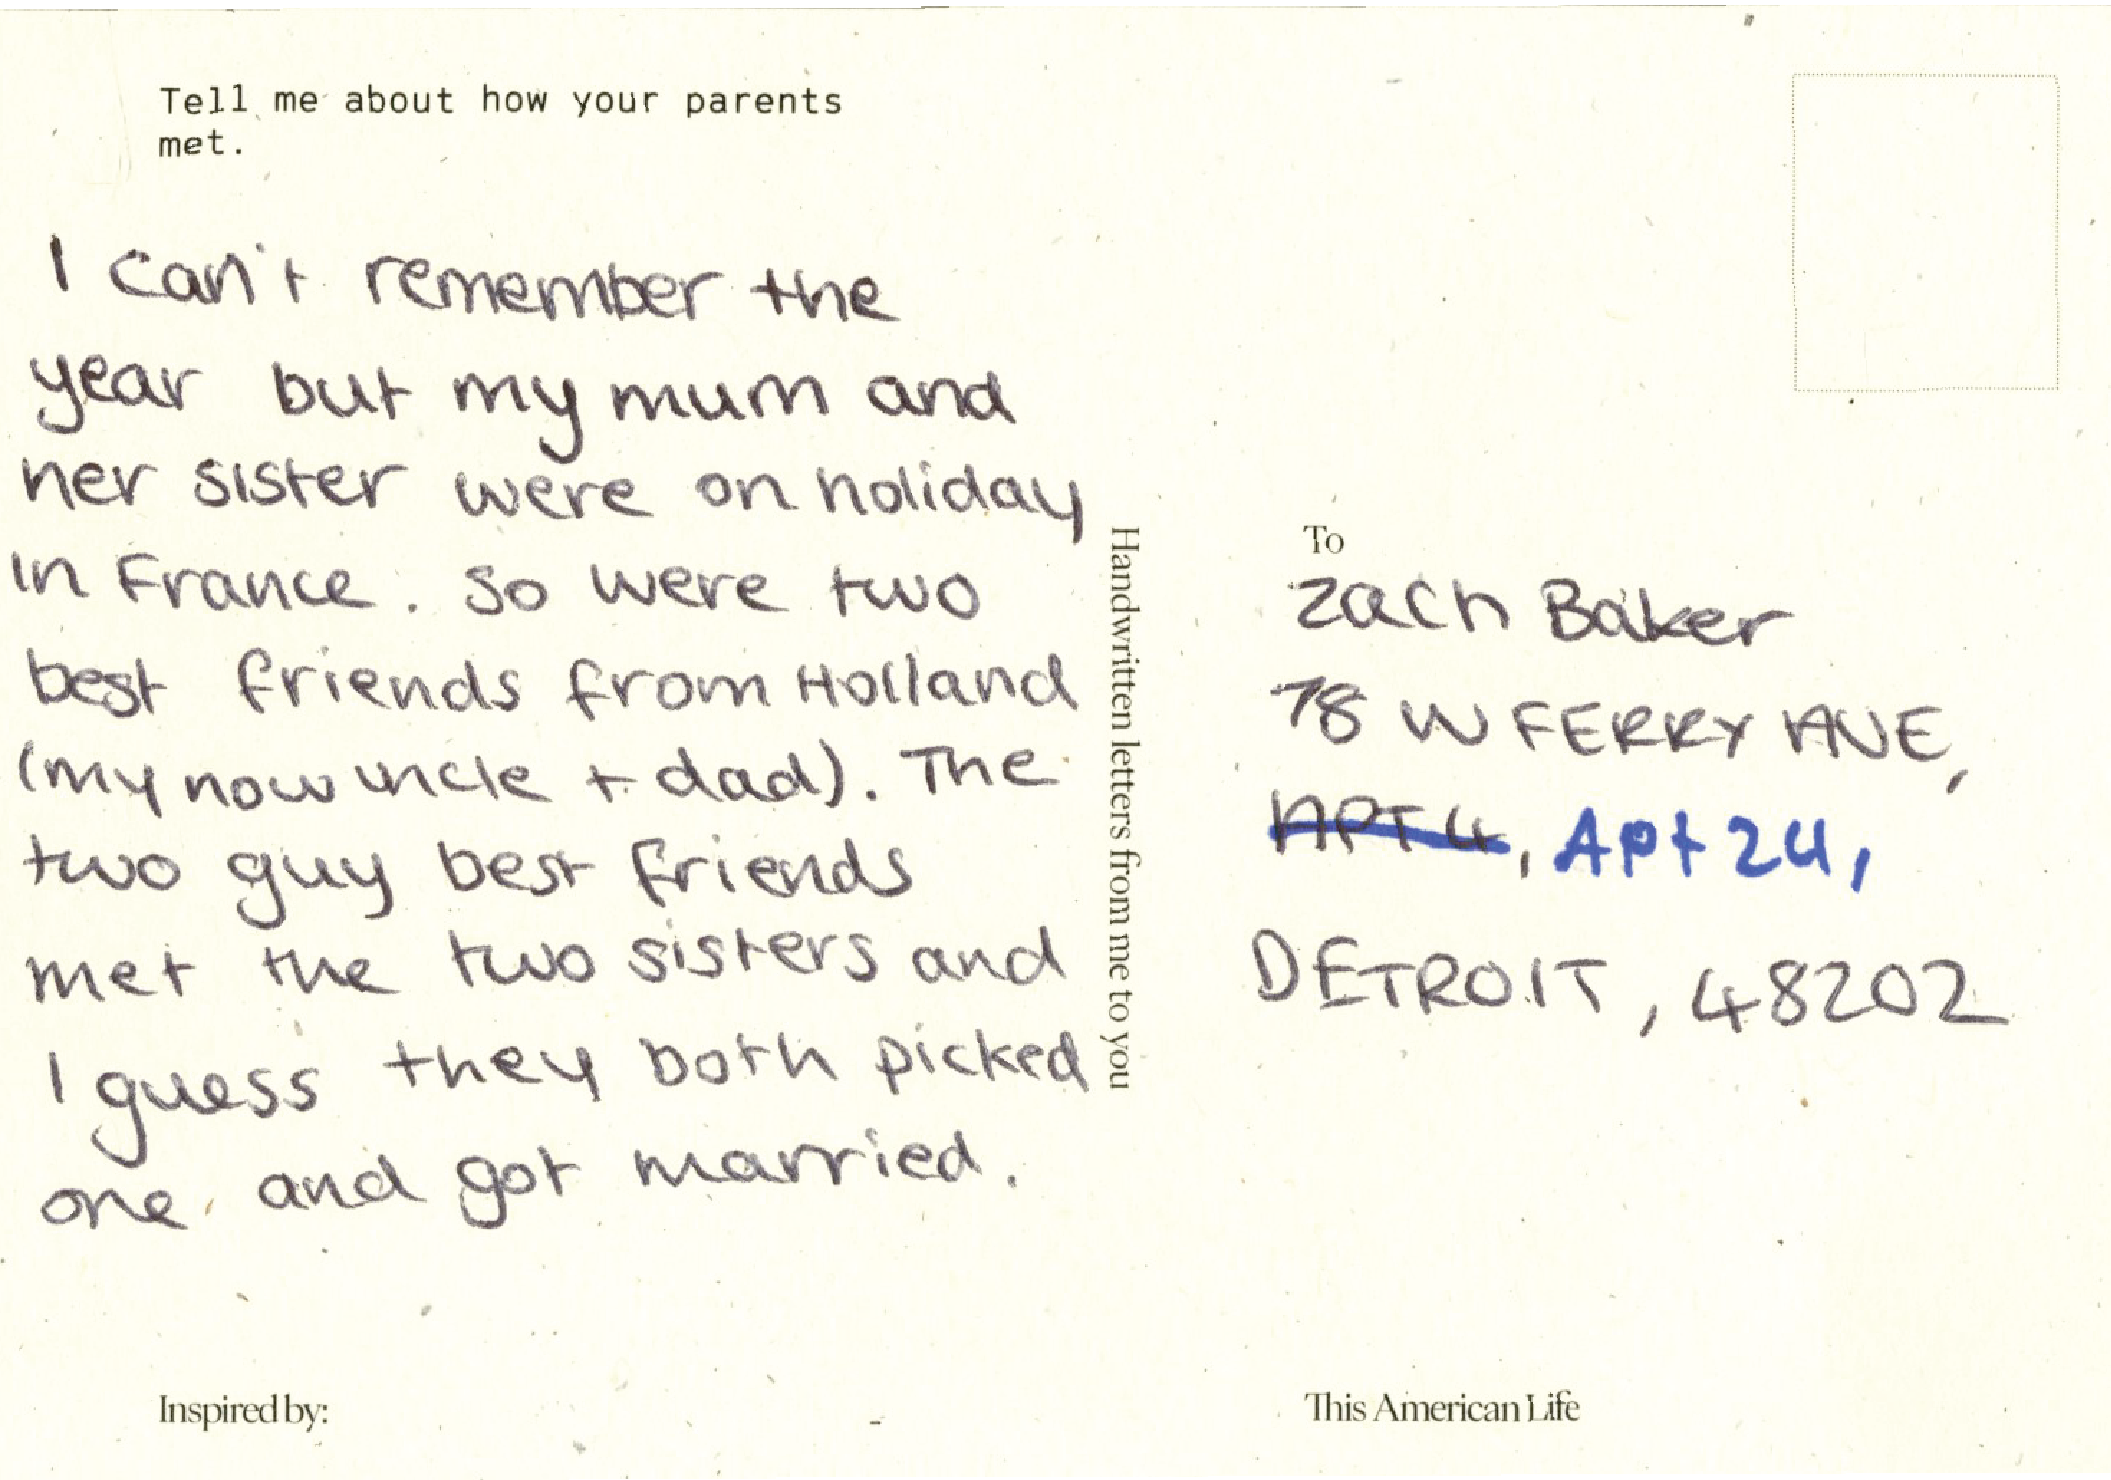 Tell me about how your parents
met.
I can't remember the
year but my mum and
her sister were on holiday
in France. So were two
best friends from Holland
(my now uncle + dad). The
two guy best friends
met the two sisters and
I guess they both picked
one and got married.
Inspired by:
Handwritten letters from me to you
To
Zach Baker
78 W FERRY AVE,
APT 4, Apt 24,
DETROIT, 48202
This American Life